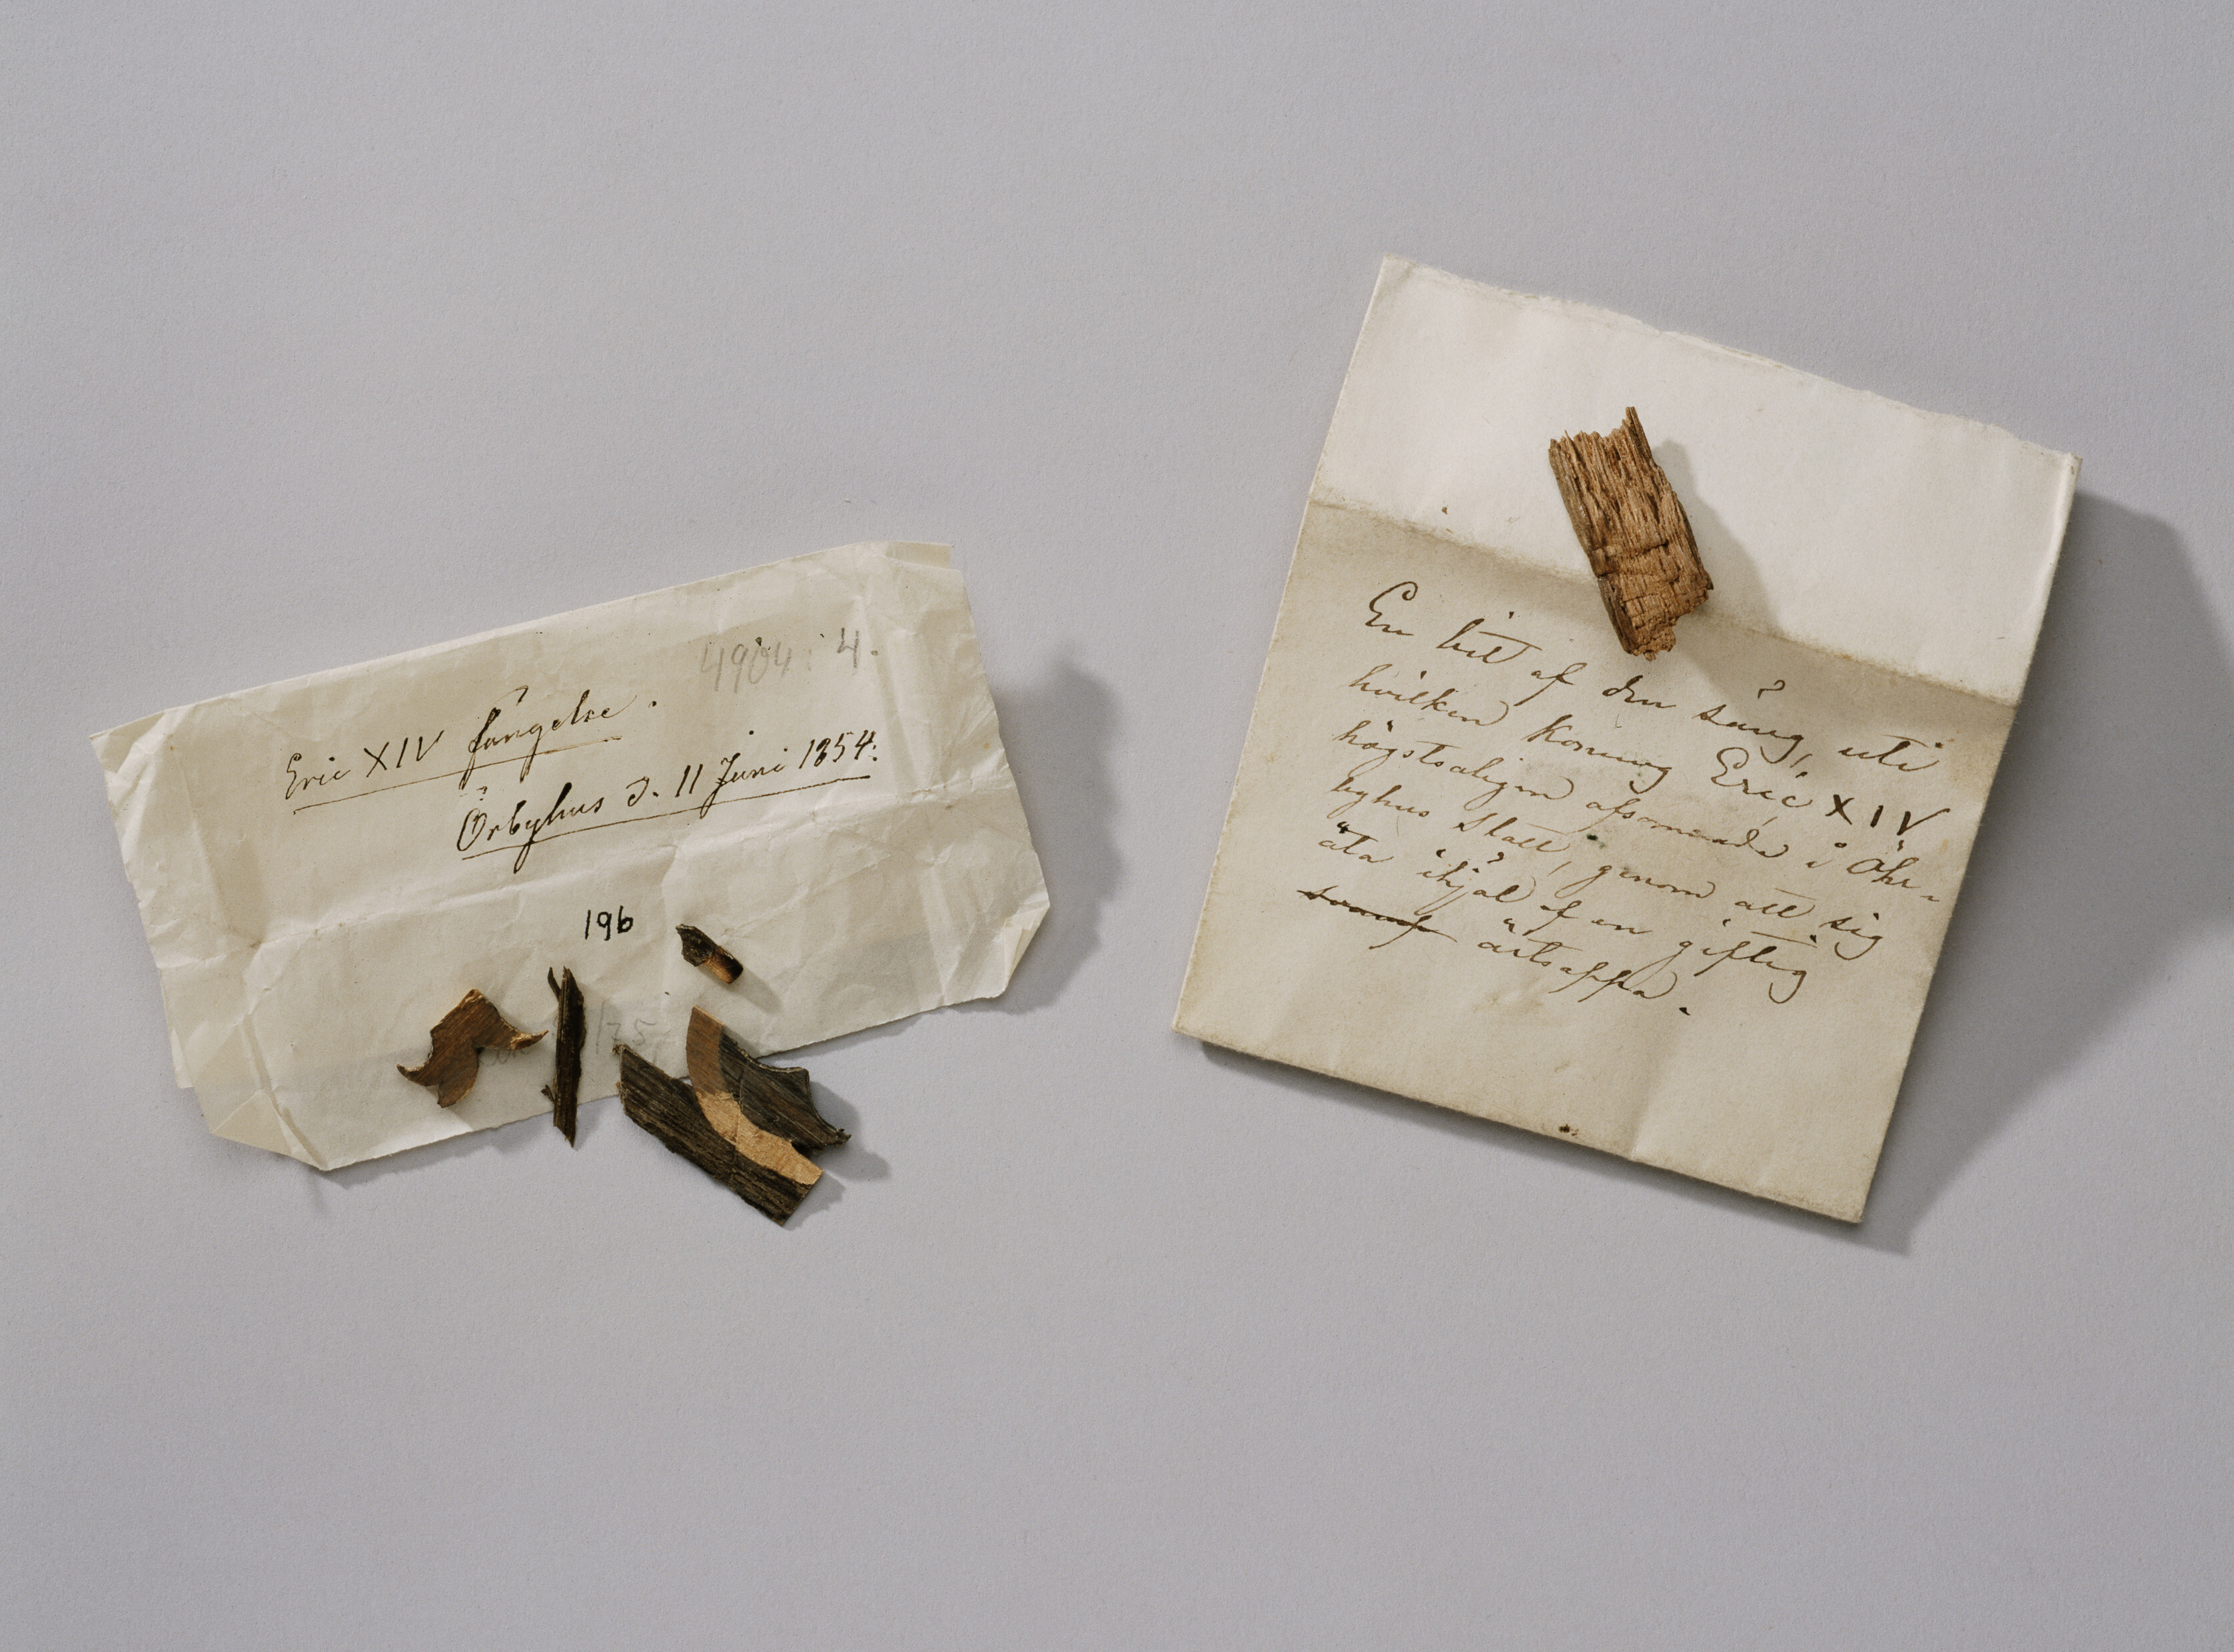 Eric XIV fängelse.
Örbyhus d. 11 Juni 1854.
4904:4.
196
175
En bit af den säng, uti
hvilken Konung Eric XIV
högstsaligen afsomnade i Öhr-
byhus Slott, genom att sig
äta ihjäl af en giftig
svamp ärtsoppa.